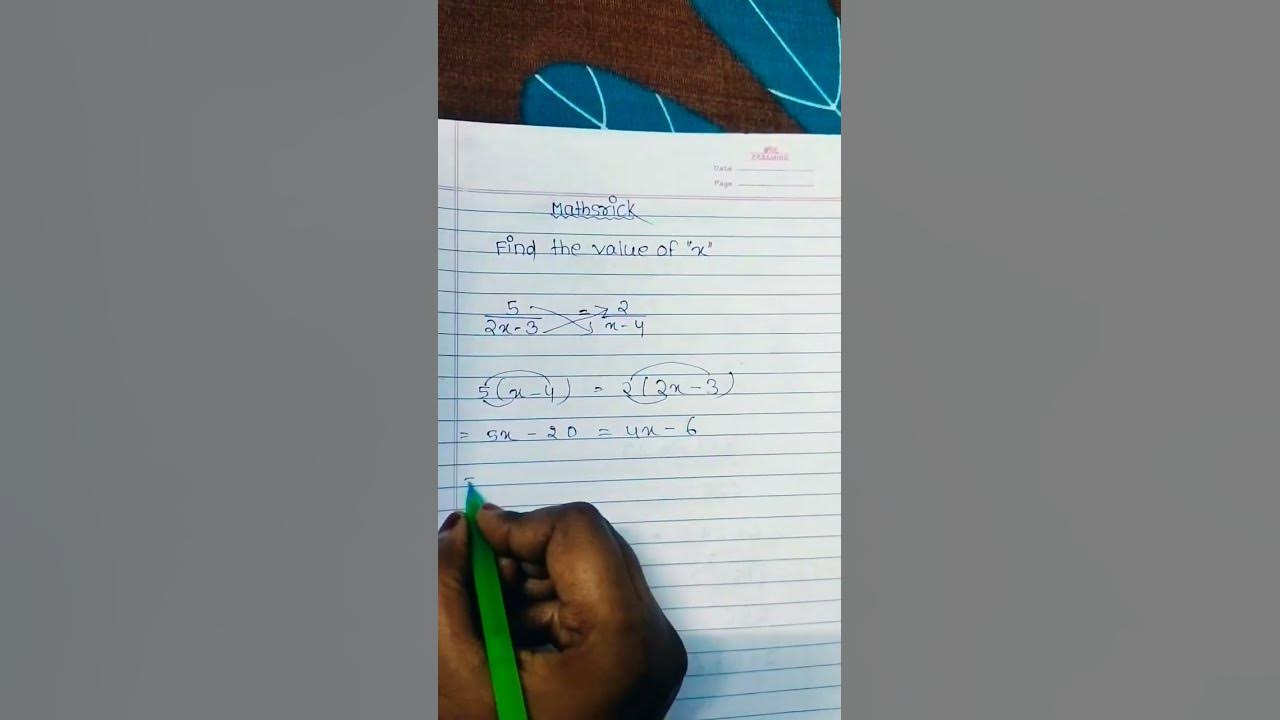 Date
Page
Mathsrick
Find the value of "x"
5 = 2
2x-3 x-4
5(x-4) = 2(2x-3)
= 5x - 20 = 4x - 6